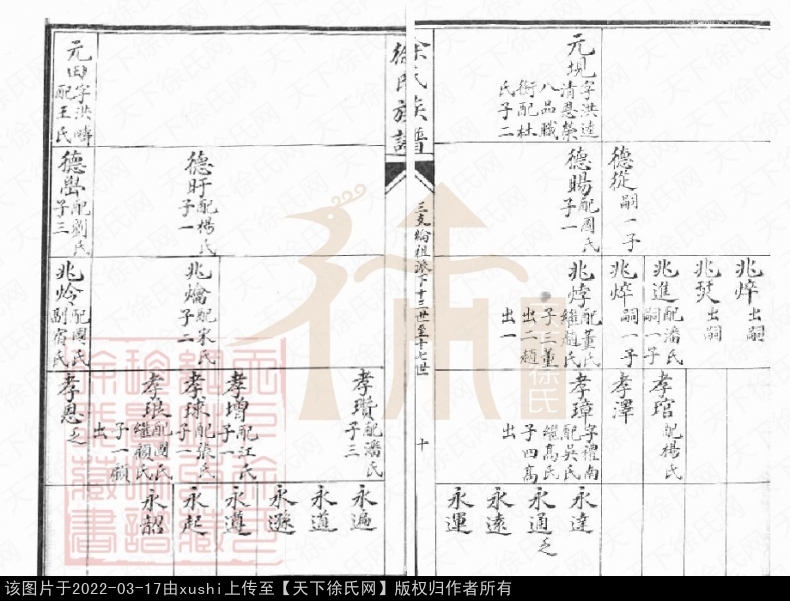 兆焠出嗣
兆焚出嗣
兆進配潘氏
嗣一子
孝琯配楊氏
德從嗣一子
兆焠嗣一子
孝澤
元堄字洪逵
清恩榮
八品職
銜配杜
氏子二
德賜配國氏
子一
兆焞配董氏
繼趙氏
子三董
出二趙
出一
孝璋字禮南
配吳氏
繼高氏
子四高
出
永達
永通乏
永遠
永運
徐氏族譜
三支綸祖派下十三世至十七世
十
孝瓚配潘氏
子三
永遍
永道
永遜
德盱配楊氏
子一
兆爚配宋氏
子二
孝增配江氏
子一
永遵
孝球配張氏
子一
永起
孝琅配國氏
繼顏氏
子一顏
出
永韶
元田字洪疇
配王氏
德嵒配劉氏
子三
兆炩配國氏
副宿氏
孝恩乏
天下徐氏网
该图片于2022-03-17由xushi上传至【天下徐氏网】版权归作者所有